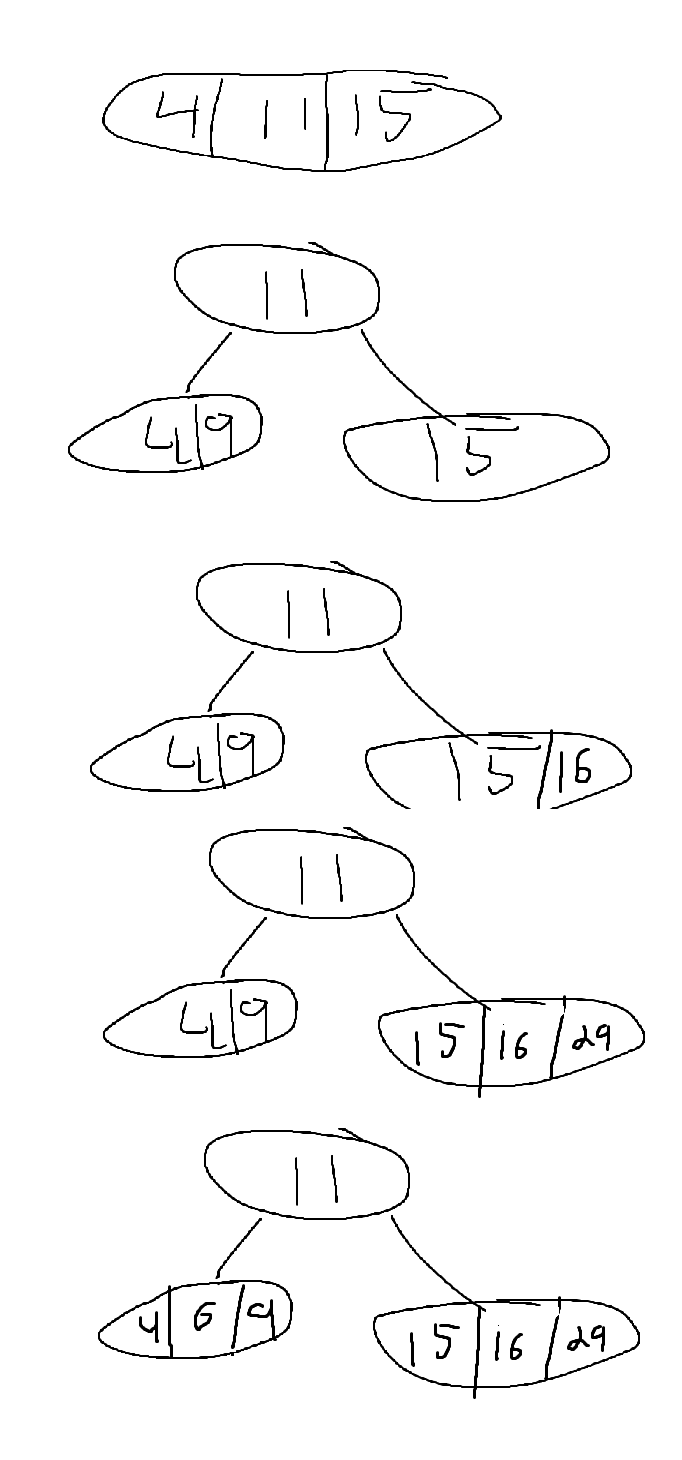 4 11 15
11
4 9 15
11
4 9 15 16
11
4 9 15 16 29
11
4 6 9 15 16 29